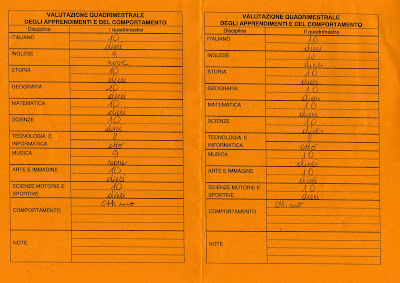 VALUTAZIONE QUADRIMESTRALE
DEGLI APPRENDIMENTI E DEL COMPORTAMENTO
Discipline I quadrimestre
ITALIANO 10
dieci
INGLESE 9
nove
STORIA 10
dieci
GEOGRAFIA 10
dieci
MATEMATICA 10
dieci
SCIENZE 10
dieci
TECNOLOGIA E 8
INFORMATICA otto
MUSICA 9
nove
ARTE E IMMAGINE 10
dieci
SCIENZE MOTORIE E 10
SPORTIVE dieci
COMPORTAMENTO Ottimo
NOTE
VALUTAZIONE QUADRIMESTRALE
DEGLI APPRENDIMENTI E DEL COMPORTAMENTO
Discipline II quadrimestre
ITALIANO 10
dieci
INGLESE 10
dieci
STORIA 10
dieci
GEOGRAFIA 10
dieci
MATEMATICA 10
dieci
SCIENZE 10
dieci
TECNOLOGIA E 8
INFORMATICA otto
MUSICA 10
dieci
ARTE E IMMAGINE 10
dieci
SCIENZE MOTORIE E 10
SPORTIVE dieci
COMPORTAMENTO Ottimo
NOTE